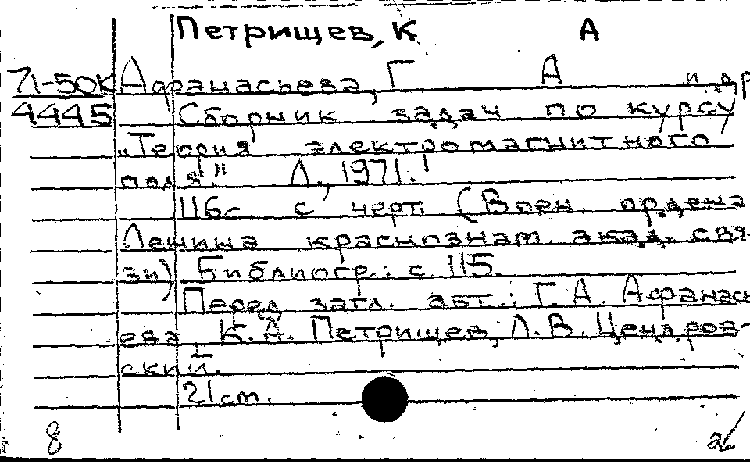 Петрищев, К А
71-50К Афанасьева, Г А и др
4445 Сборник задач по курсу
„Теория электромагнитного
поля". Л., 1971.
116с с черт (Воен. ордена
Ленина краснознам. акад. свя-
зи) Библиогр.: с 115.
Перед загл. авт.: Г. А. Афанась-
ева, К. А. Петрищев, Л. В. Цендров-
ский.
21 cm.
8